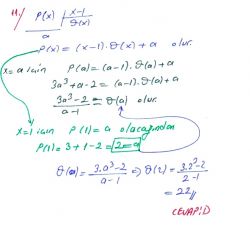 11/ P(x) | x-1
ϑ(x)
a
P(x) = (x-1).ϑ(x)+a olur.
x=a için P(a) = (a-1).ϑ(a)+a
3a³+a-2 = (a-1).ϑ(a)+a
3a³-2/a-1 = ϑ(a) olur.
x=1 için P(1) = a olacağından
P(1) = 3+1-2 = 2 = a
ϑ(a) = 3.a³-2/a-1 ⇒ ϑ(2) = 3.2³-2/2-1
= 22//
CEVAP: D